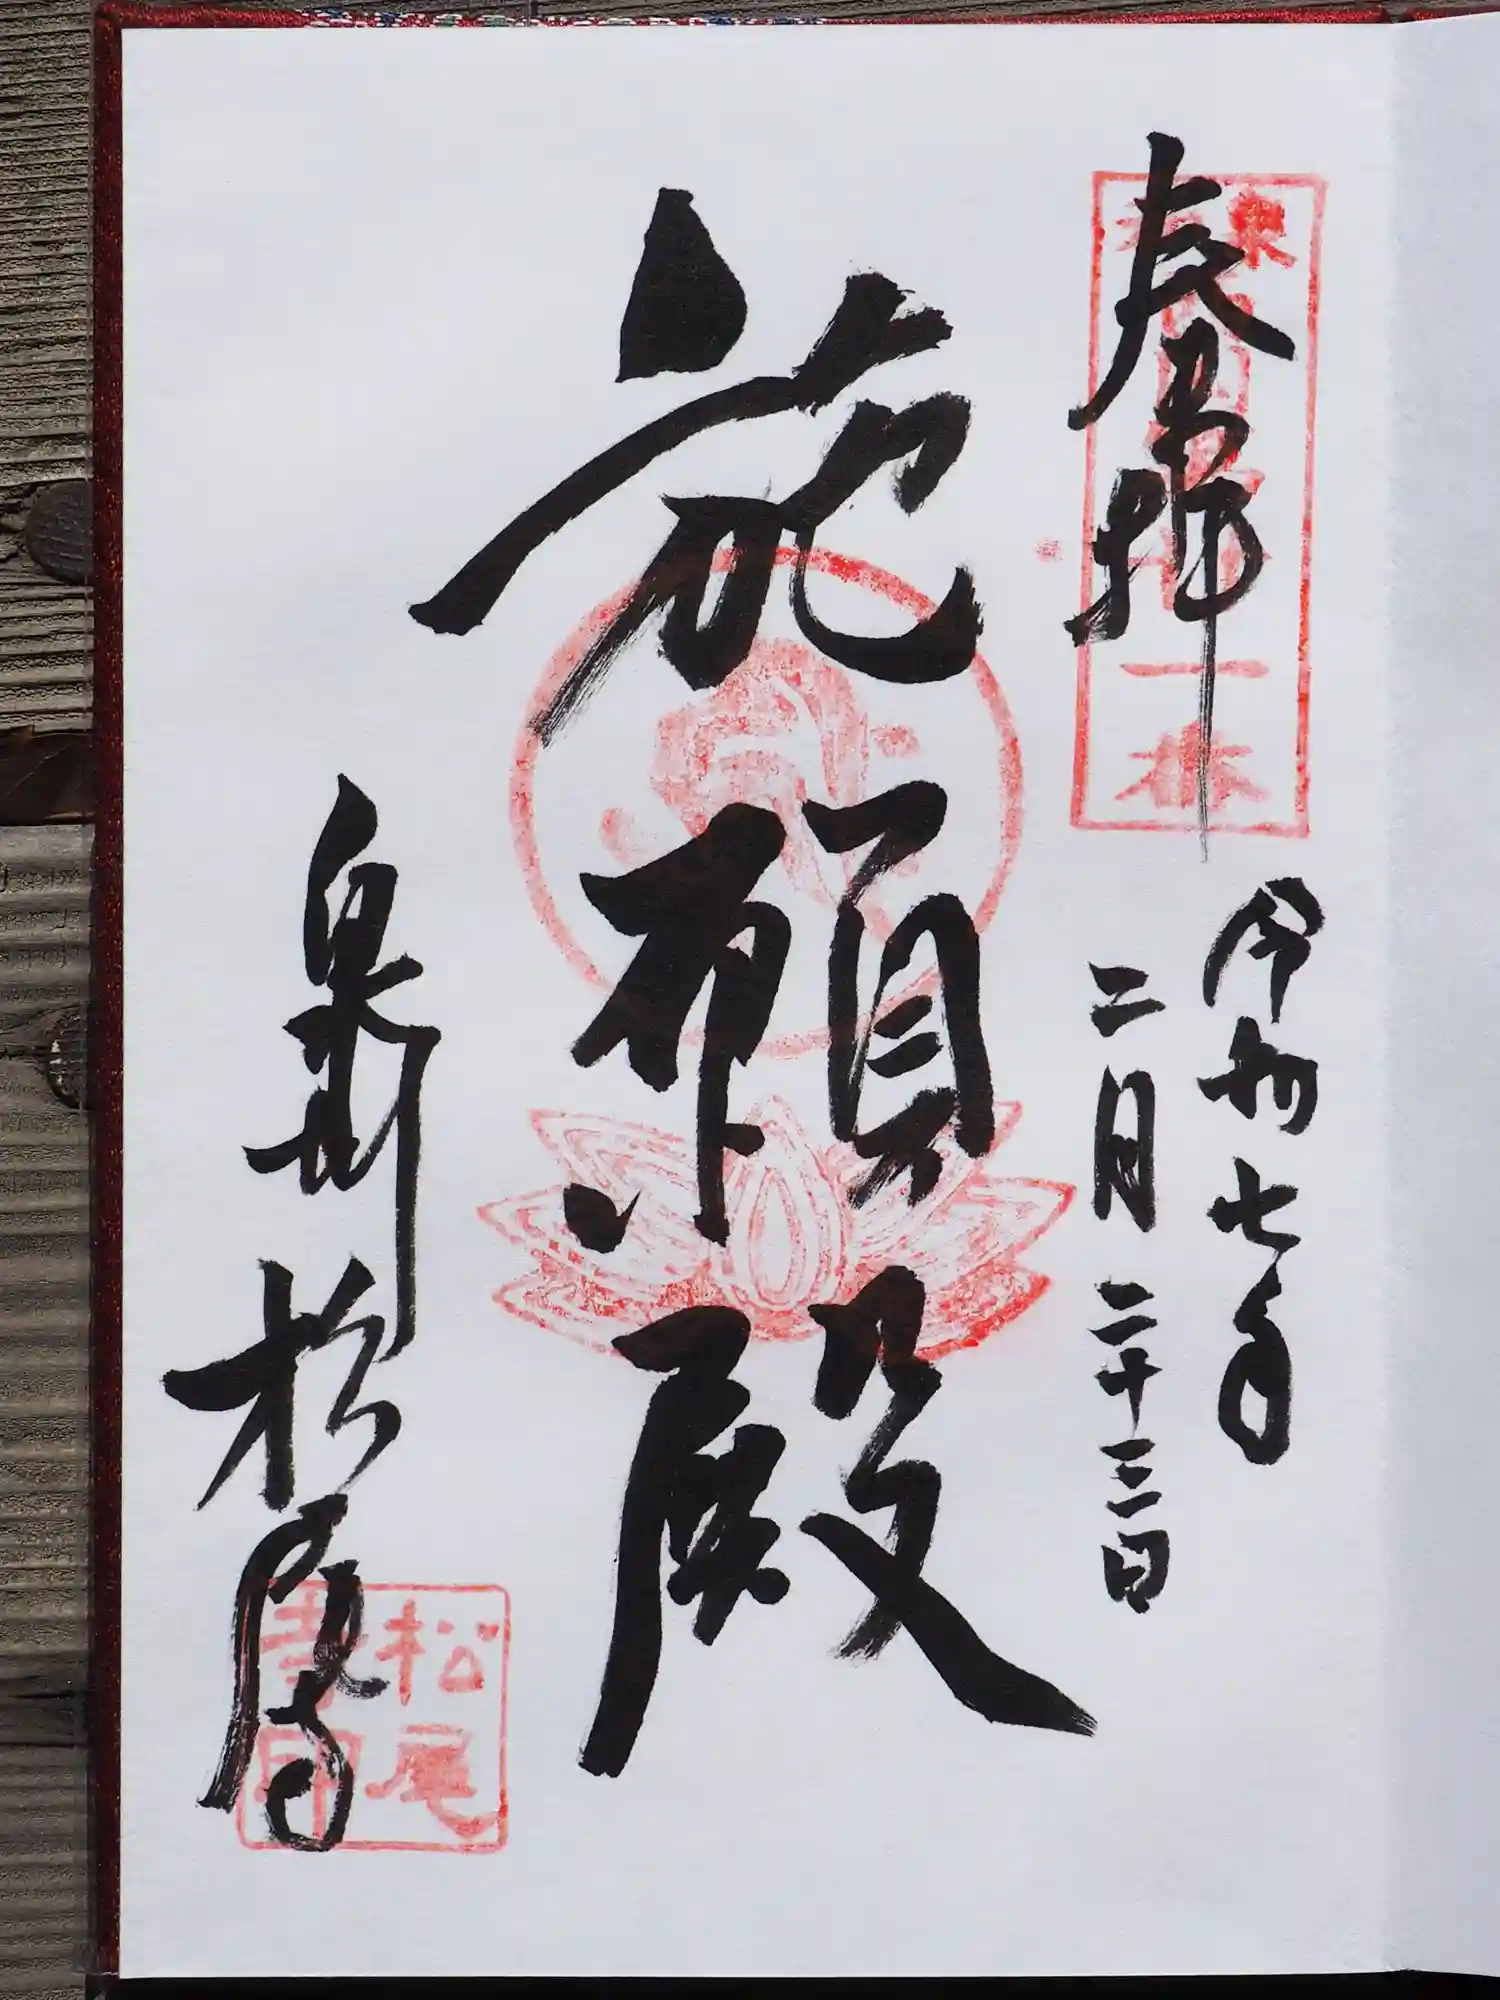 奉拝
令和七年
二月二十三日
施願殿
泉州松尾寺
松尾
寺印